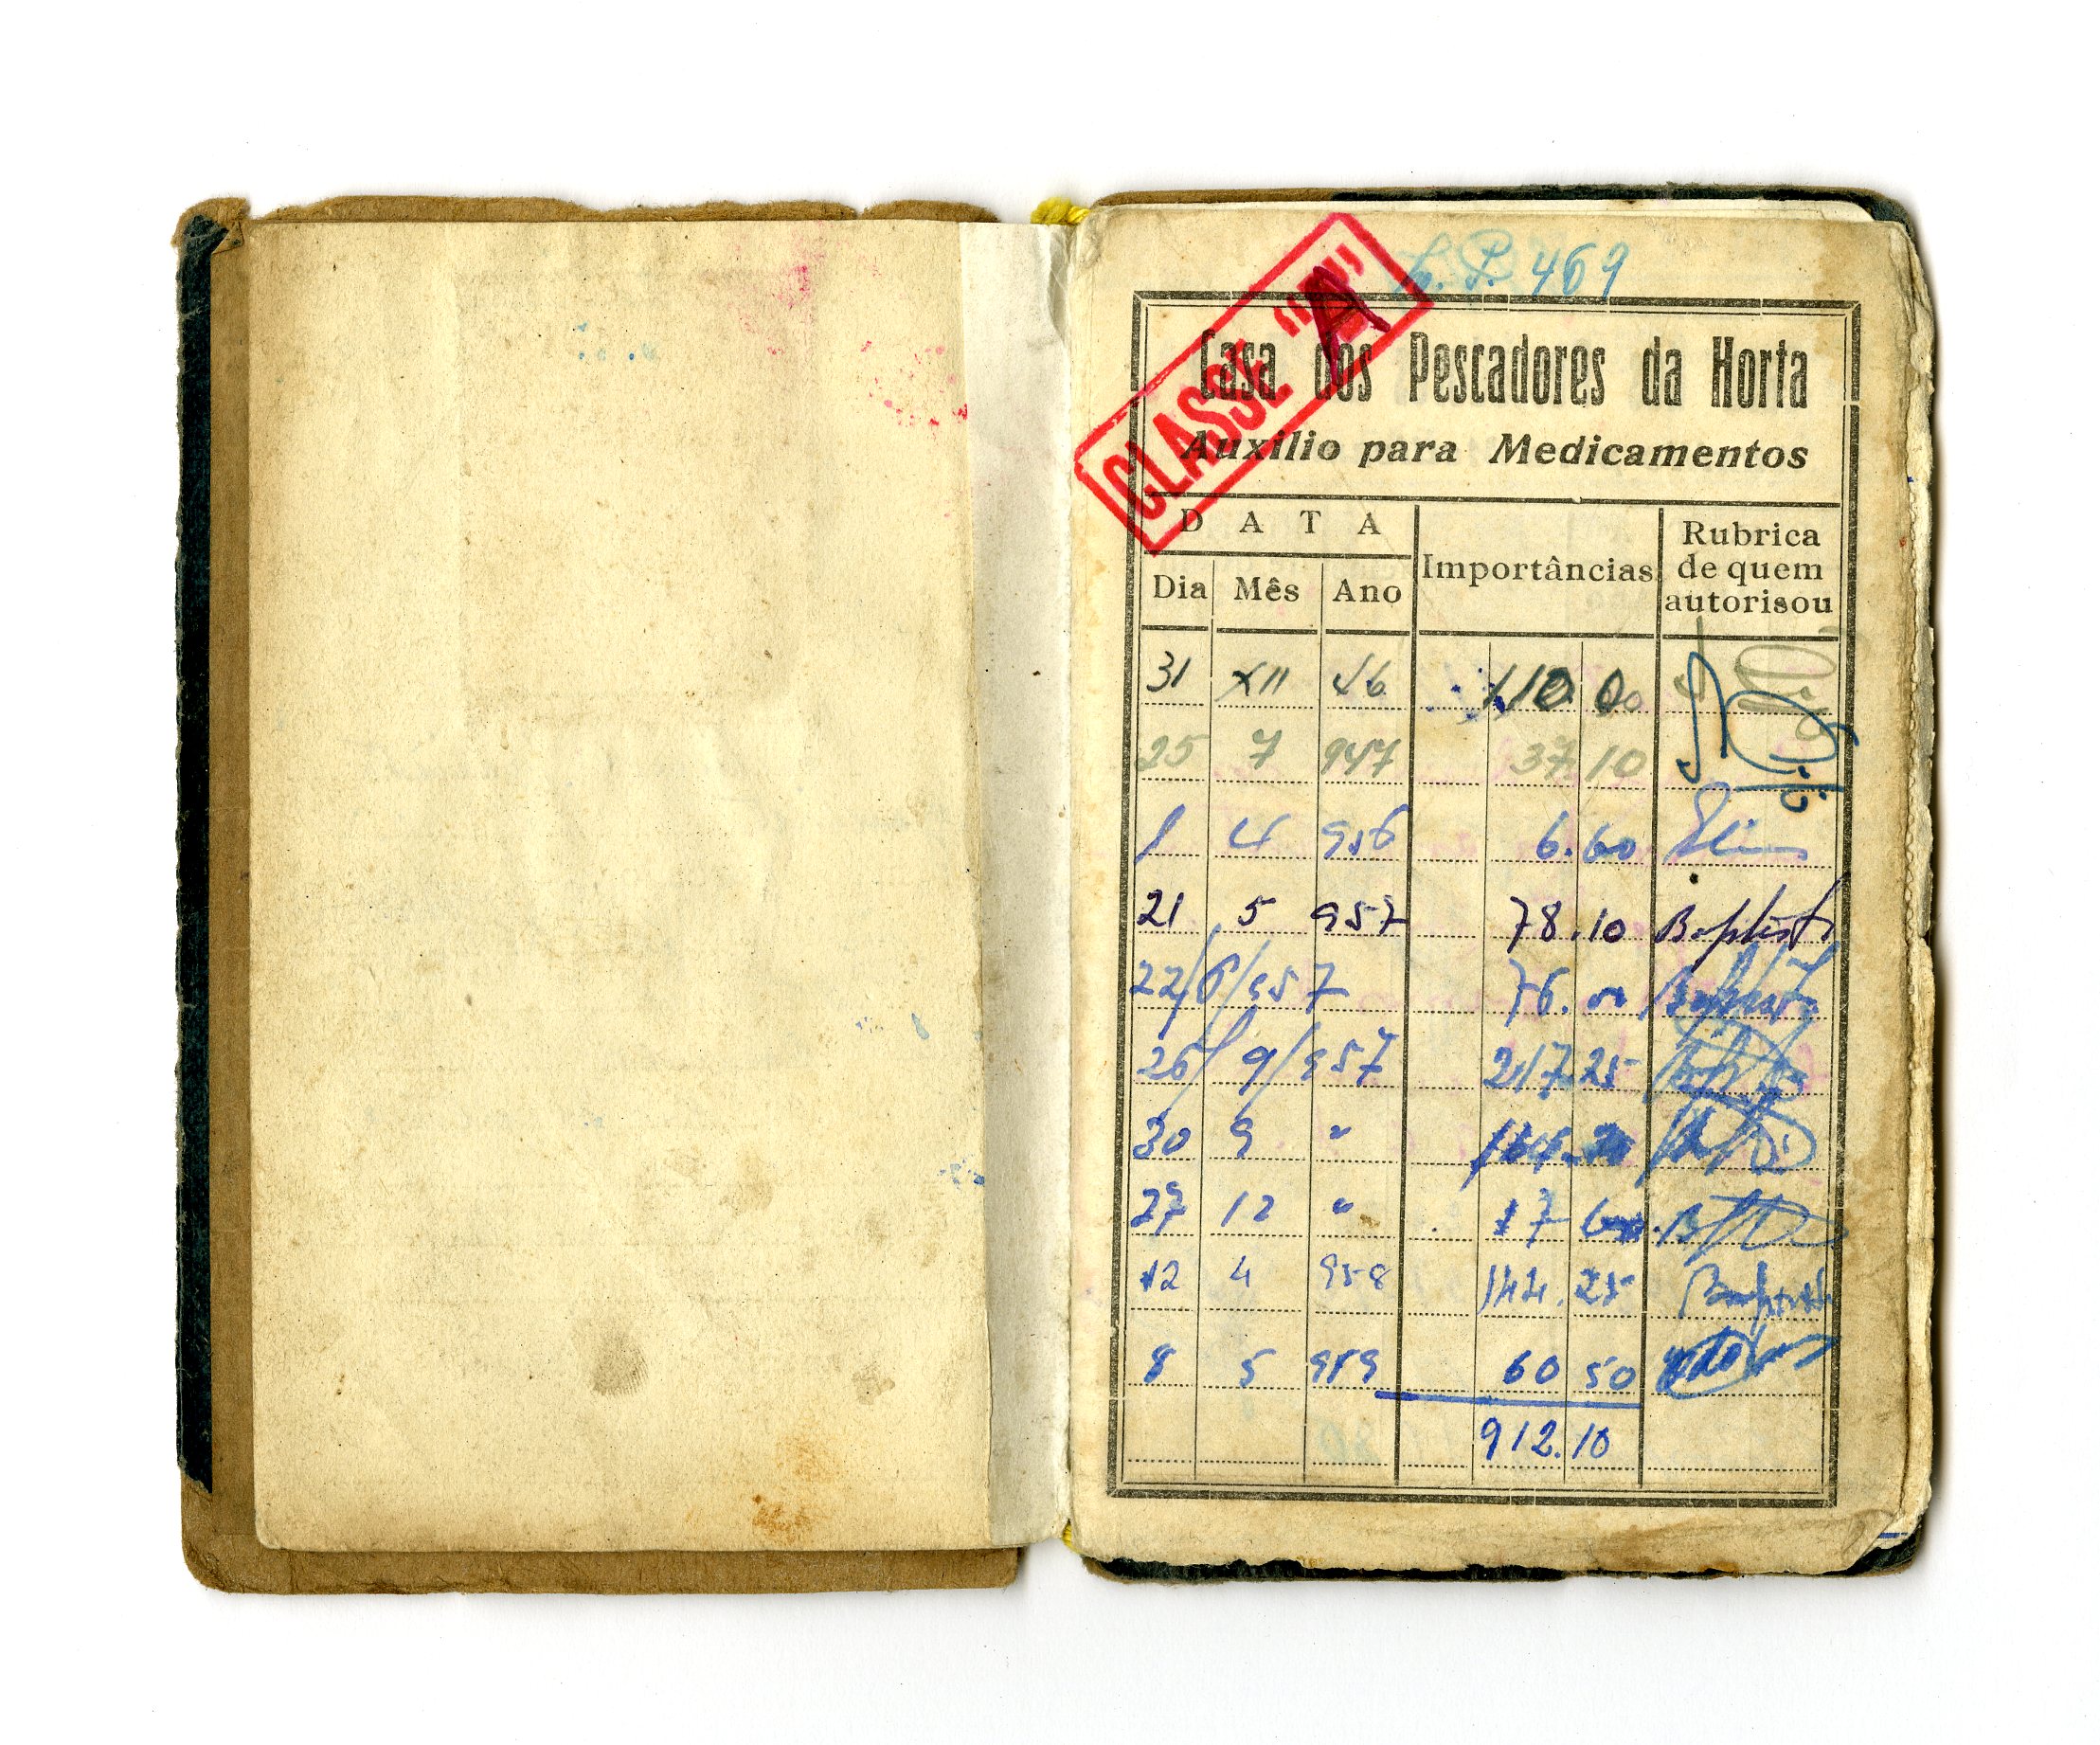 469
CLASSE "A"
Casa dos Pescadores da Horta
Auxilio para Medicamentos
DATA Importâncias Rubrica de quem autorisou
Dia Mês Ano
31 XII 46 110 00
25 7 947 37 10
1 4 956 6.60
21 5 957 78.10 Baptista
22/6/957 76.00 Baptista
26/9/957 217.25
30 9 "
12 "
12 4 958 144.25 Baptista
8 5 959 60 50
912.10